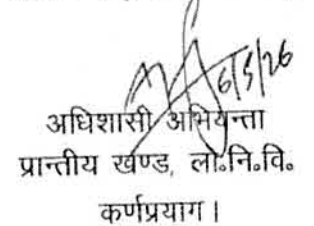 6/5/26
अधिशासी अभियन्ता
प्रान्तीय खण्ड, लो॰नि॰वि॰
कर्णप्रयाग।